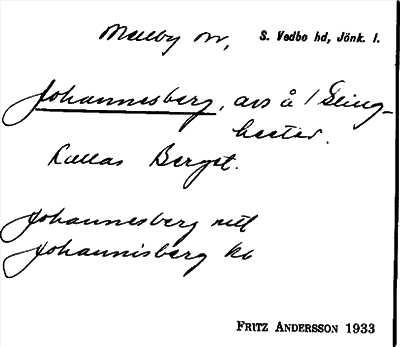 Melby sn, S. Vedbo hd, Jönk. l.
Johannesberg, avs å 1
hester.
Kallas Berget.
Johannesberg
Johannisberg kb
FRITZ ANDERSSON 1933